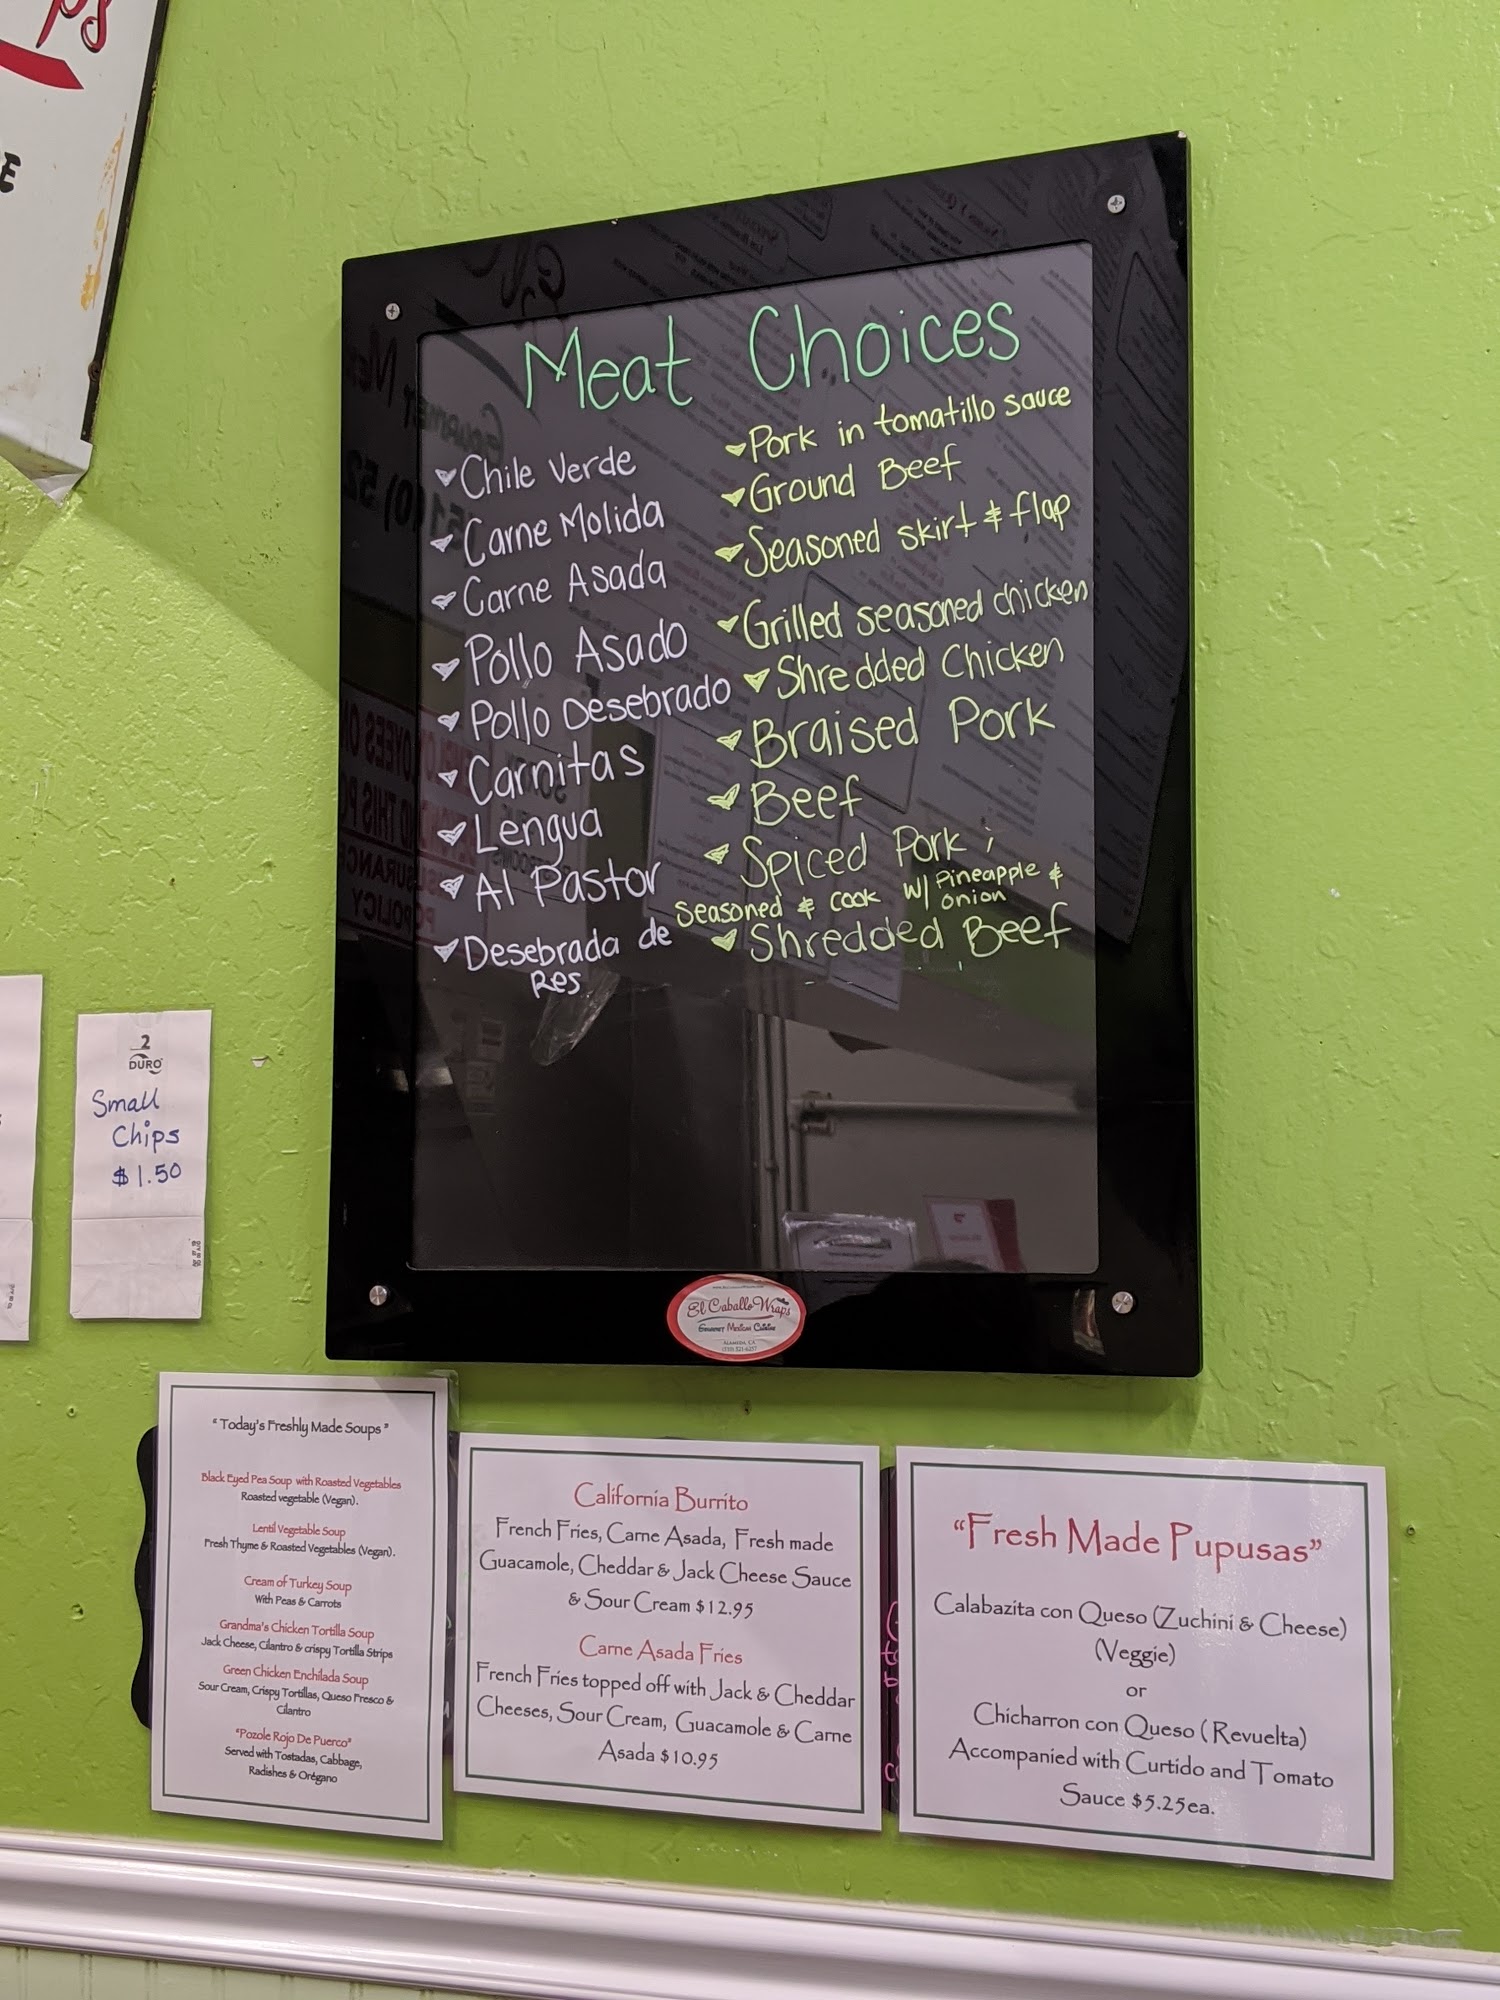 Meat Choices
Chile Verde
Carne Molida
Carne Asada
Pollo Asado
Pollo Desebrado
Carnitas
Lengua
Al Pastor
Desebrada de
Res
Pork in tomatillo sauce
Ground Beef
Seasoned skirt & flap
Grilled seasoned chicken
Shredded Chicken
Braised Pork
Beef
Spiced Pork ;
Seasoned & cook w/ Pineapple &
onion
Shredded Beef
2
DURO
Small
Chips
$1.50
El Caballo Wraps
Gourmet Mexican Cuisine
Alameda, CA
"Today's Freshly Made Soups"
Black Eyed Pea Soup with Roasted Vegetables
Roasted vegetable (Vegan).
Lentil Vegetable Soup
Fresh Thyme & Roasted Vegetables (Vegan).
Cream of Turkey Soup
With Peas & Carrots
Grandma's Chicken Tortilla Soup
Jack Cheese, Cilantro & crispy Tortilla Strips
Green Chicken Enchilada Soup
Sour Cream, Crispy Tortillas, Queso Fresco &
Cilantro
"Pozole Rojo De Puerco"
Served with Tostadas, Cabbage,
Radishes & Orégano
California Burrito
French Fries, Carne Asada, Fresh made
Guacamole, Cheddar & Jack Cheese Sauce
& Sour Cream $12.95
Carne Asada Fries
French Fries topped off with Jack & Cheddar
Cheeses, Sour Cream, Guacamole & Carne
Asada $10.95
"Fresh Made Pupusas"
Calabazita con Queso (Zuchini & Cheese)
(Veggie)
or
Chicharron con Queso (Revuelta)
Accompanied with Curtido and Tomato
Sauce $5.25ea.